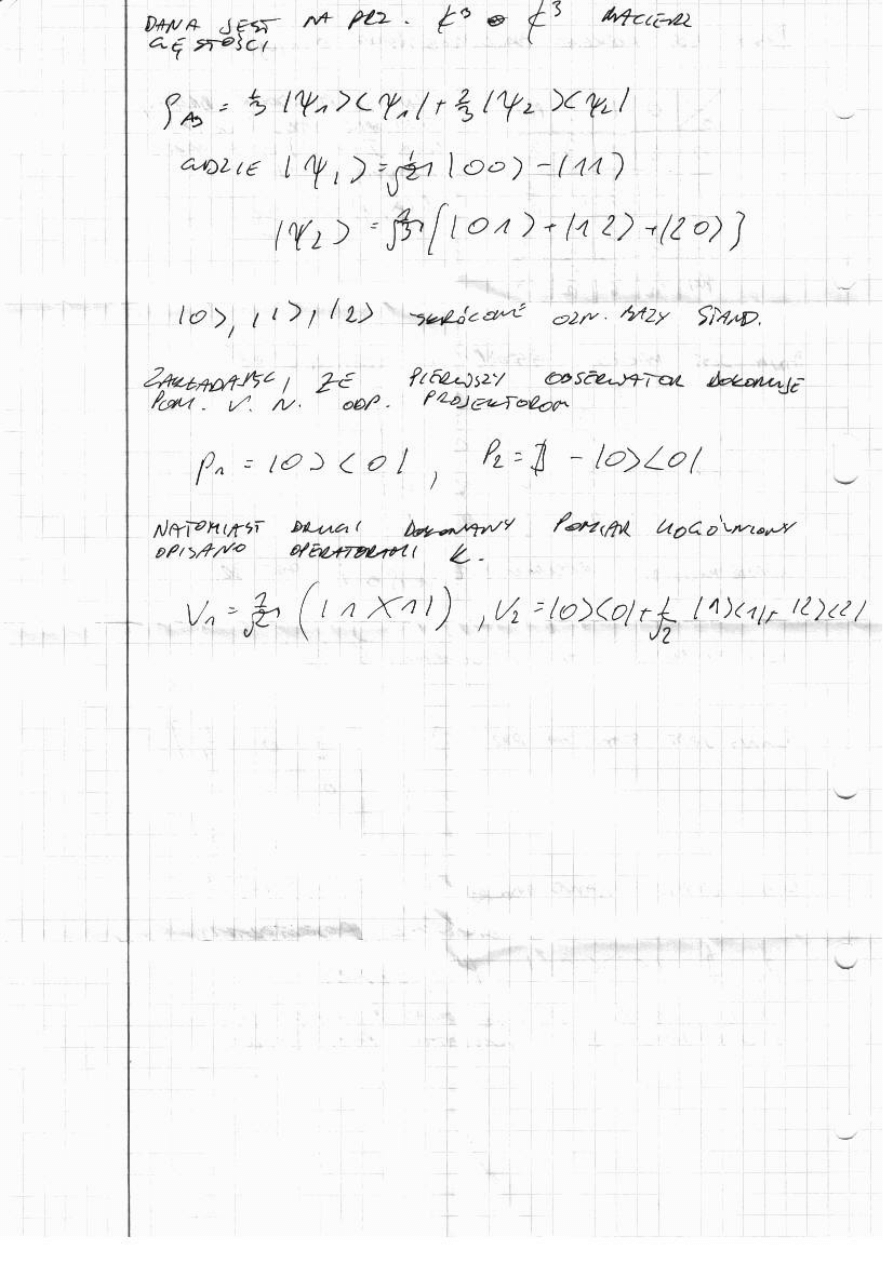 DANA JEST NA PRZ. ℂ³ ⊗ ℂ³ MACIERZ
GĘSTOŚCI
ρ_AB = 1/3 |ψ₁><ψ₁| + 2/3 |ψ₂><ψ₂|
GDZIE |ψ₁> = 1/√2 |00> - |11>
|ψ₂> = 1/√3 [|01> + |12> + |20>]
|0>, |1>, |2> SKRÓCONE OZN. BAZY STAND.
ZAKŁADAJĄC, ŻE PIERWSZY OBSERWATOR DOKONUJE
POM. V. N. ODP. PROJEKTOROM
P₁ = |0><0| , P₂ = 𝟙 - |0><0|
NATOMIAST DRUGI DOKONANY POMIAR UOGÓLNIONY
OPISANO OPERATORAMI K.
V₁ = 1/√2 (|1><1|) , V₂ = |0><0| + 1/√2 |1><1| + |2><2|